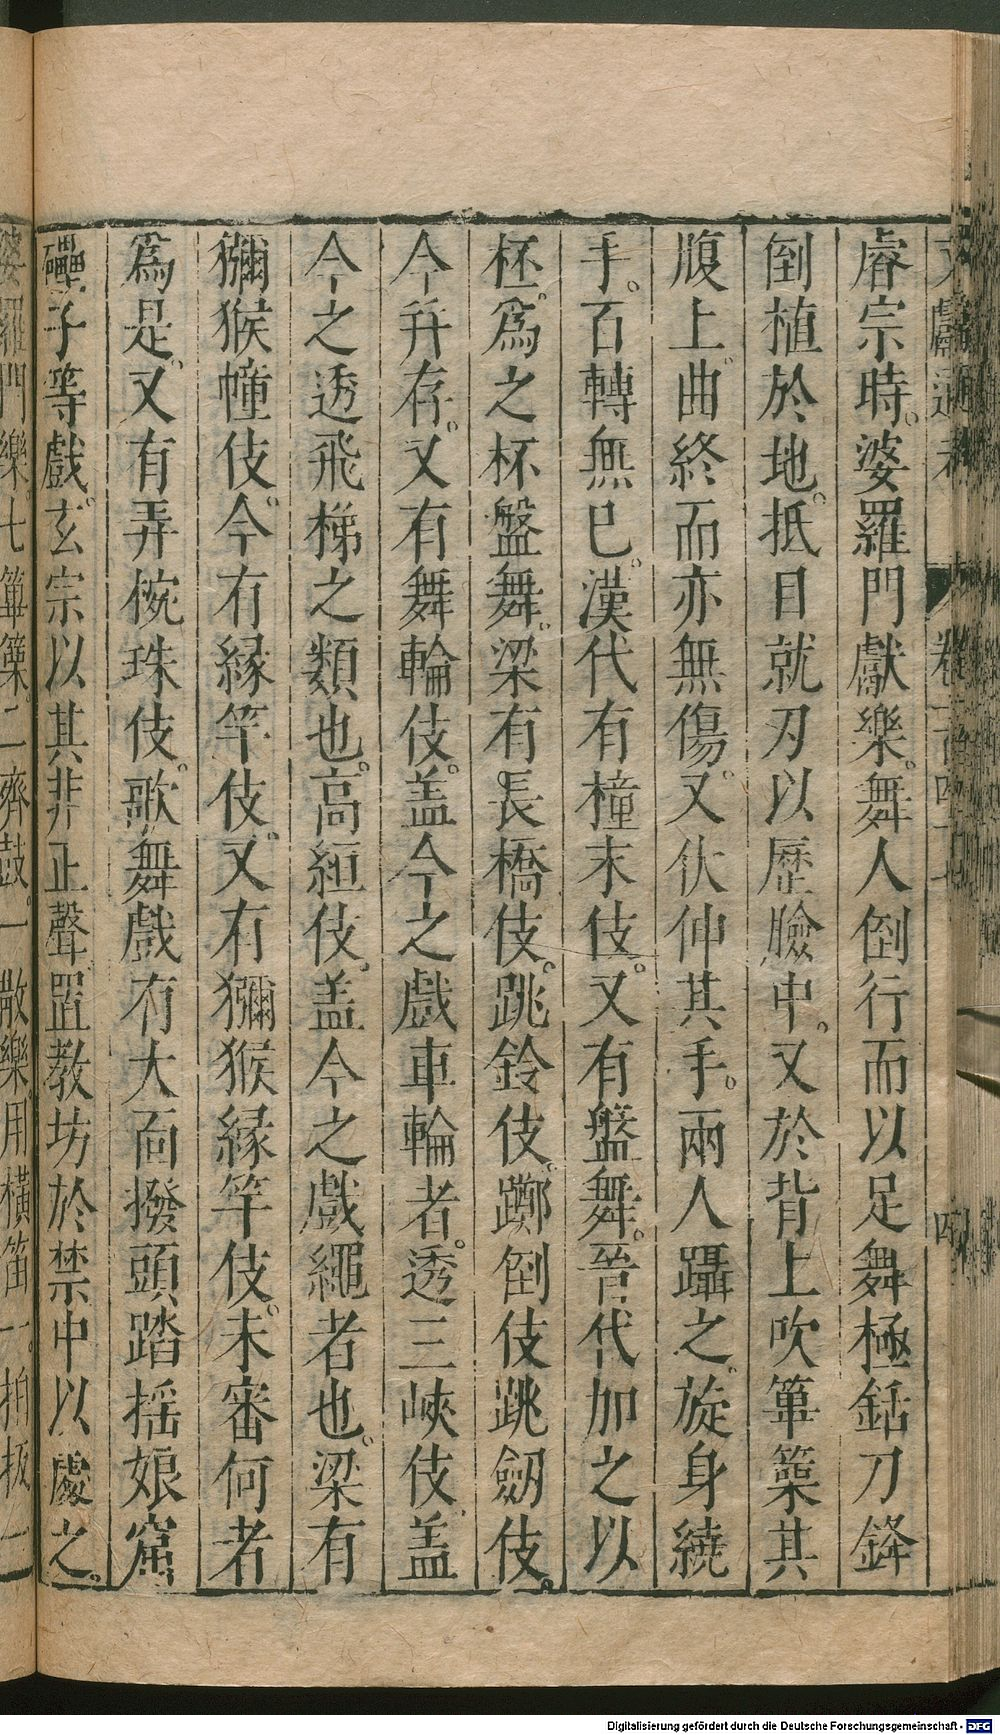 文獻通考 卷一百四十七 四
睿宗時。婆羅門獻樂。舞人倒行而以足舞極銛刀鋒
倒植於地。抵目就刃以歷臉中。又於背上吹篳篥其
腹上。曲終而亦無傷。又伏伸其手。兩人躡之。旋身繞
手。百轉無已。漢代有橦末伎。又有盤舞。晉代加之以
柸。爲之杯盤舞。梁有長橋伎。跳鈴伎。躑倒伎跳劒伎。
今幷存。又有舞輪伎。盖今之戲車輪者。透三峽伎。盖
今之透飛梯之類也。高絙伎。盖今之戲繩者也。梁有
獼猴幢伎。今有緣竿伎。又有獼猴緣竿伎。未審何者
爲是。又有弄椀珠伎。歌舞戲有大面撥頭踏搖娘窟
礧子等戲。玄宗以其非正聲置教坊於禁中以處之。
婆羅門樂。七篳篥。二齊鼓。一散樂。用橫笛一。拍板一
Digitalisierung gefördert durch die Deutsche Forschungsgemeinschaft - DFG